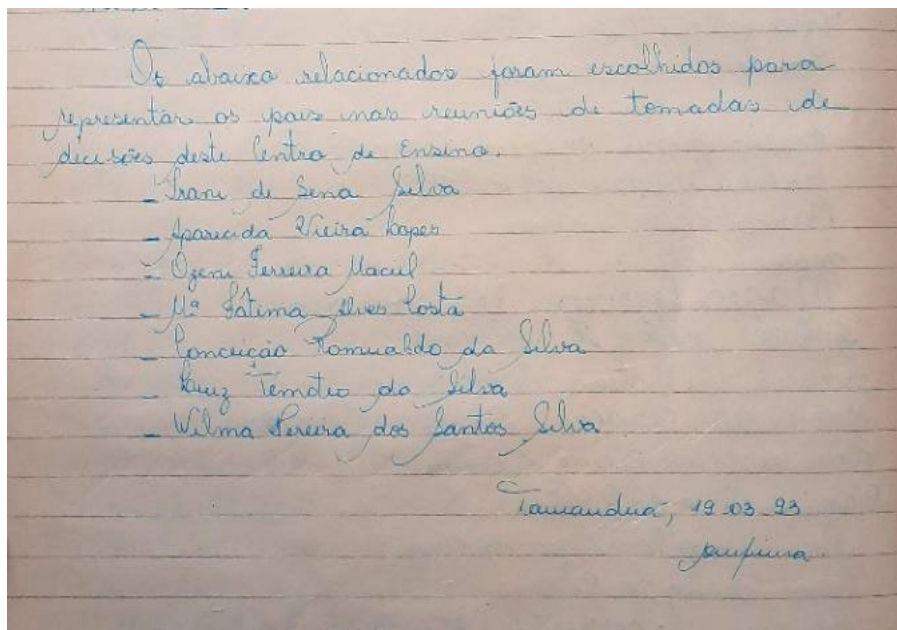 Os abaixo relacionados foram escolhidos para
representar os pais nas reuniões de tomadas de
decisões deste Centro de Ensino.
- Irani de Sena Silva
- Aparecida Vieira Lopes
- Ozeni Ferreira Maciel
- Mª Fátima Alves Costa
- Conceição Romualdo da Silva
- Temoteo da Silva
- Wilma Pereira dos Santos Silva
Tamanduá, 19-03-93